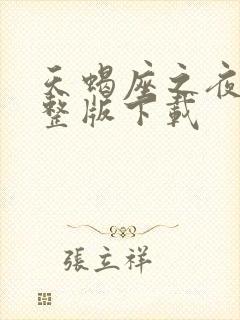 天蝎座之夜
整版下載
張立祥